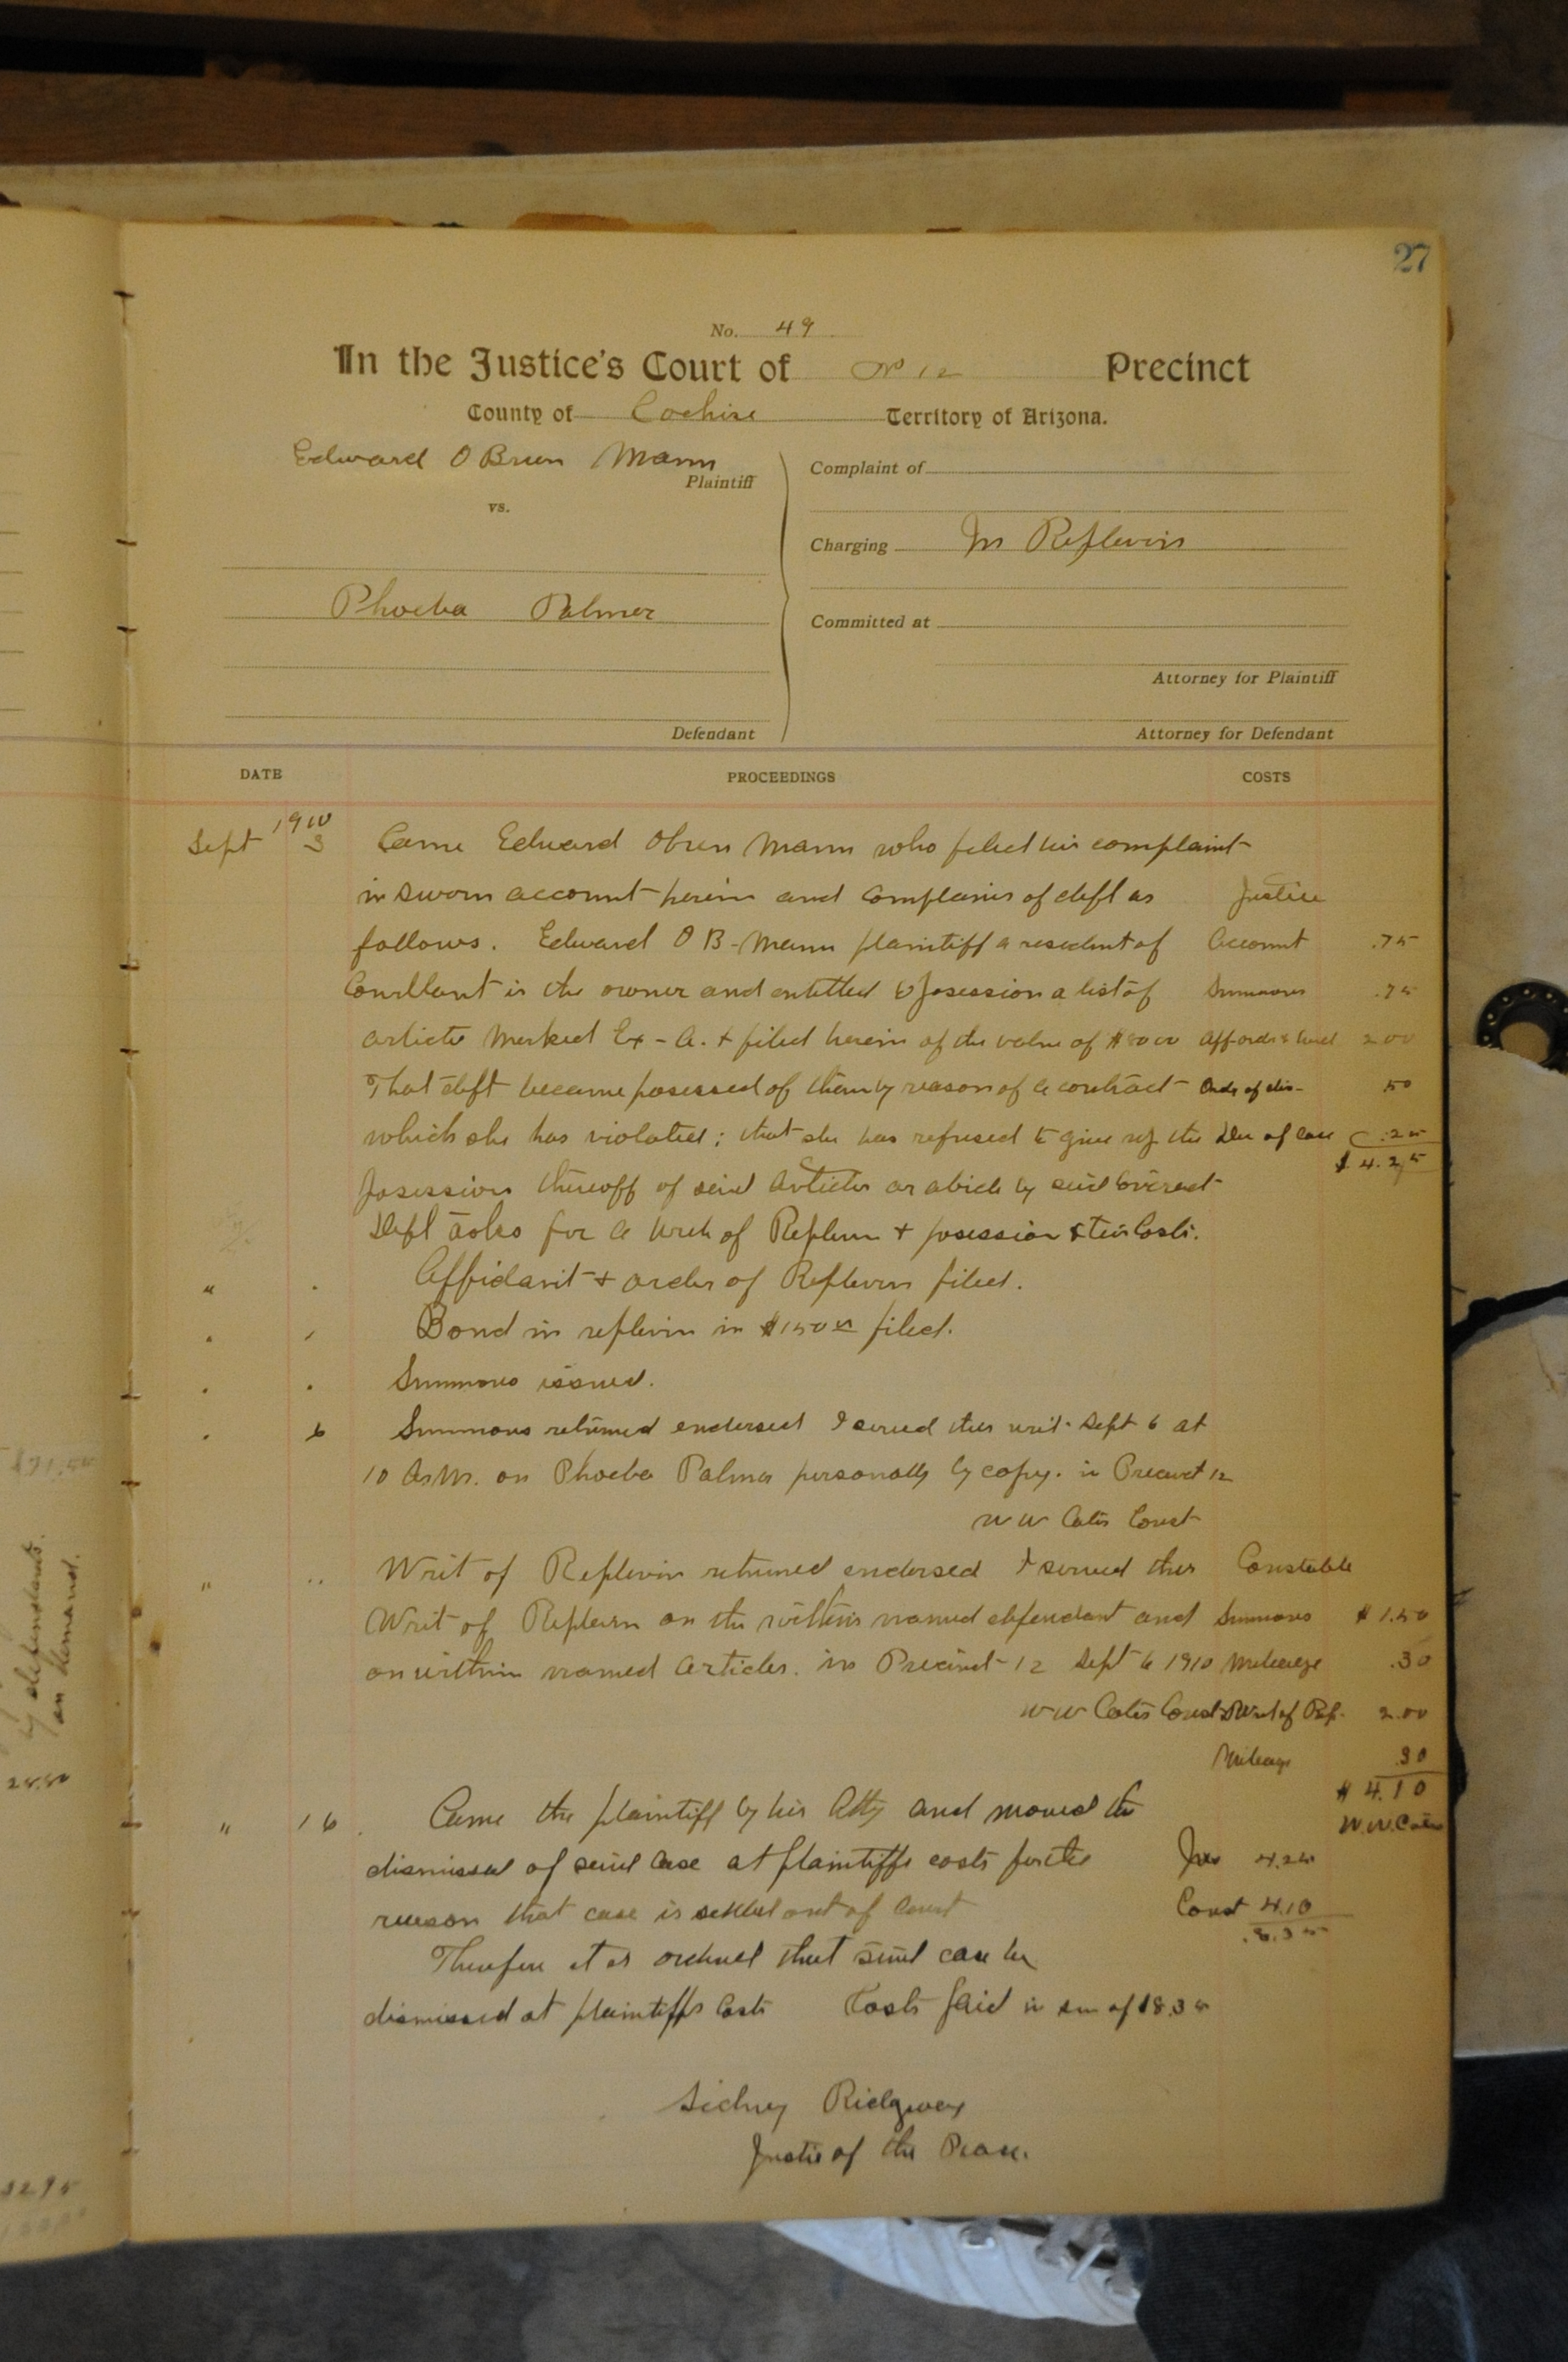 27
No. 49
In the Justice's Court of No 12 Precinct
County of Cochise Territory of Arizona.
Edward O Brien Mann
Plaintiff
vs.
Phoeba Palmer
Defendant
Complaint of
Charging In Replevin
Committed at
Attorney for Plaintiff
Attorney for Defendant
DATE PROCEEDINGS COSTS
1910
Sept 3 Came Edward Obrien Mann who filed his complaint
in sworn account herein and complains of deft as Justice
follows. Edward O B-Mann plaintiff a resident of Account .75
Courtland is the owner and entitled to posession a list of Summons .75
articles Marked Ex-A. + filed herein of the value of $8000 2 00
That deft became posessed of them by reason of a contract Order of dis- 50
which she has violated; that she has refused to give up the of case .25
$ 4.25
posession thereoff of said Articles or abide by said
Deft asks for a writ of Replevin + posession Costs.
" . Affidavit + order of Replevin filed.
Bond in replevin in $15000 filed.
Summons issued.
6 Summons returned endorsed I served this writ Sept 6 at
10 A.M. on Phoeba Palmer personally by copy. in Precinct 12
W W Cates Const
" .. Writ of Replevin returned endorsed I served this Constable
Writ of Replevin on the within named defendant and Summons $ 1.50
on within named Articles. in Precinct 12 Sept 6 1910 Mileage .30
W W Cates Const Writ of Rep. 2.00
Mileage 30
$ 4.10
W.W. Cates
" 16 Came the plaintiff by his Atty and moved the
dismissal of said Case at plaintiffs costs for the Jus 4.25
reason that case is settled out of Court Const 4.10
8.35
Therefore it is ordered that said case be
dismissed at plaintiffs Costs Costs paid in sum of $8.35
Sidney Ridgway
Justice of the Peace.
$31.50
by defendants.
on demand.